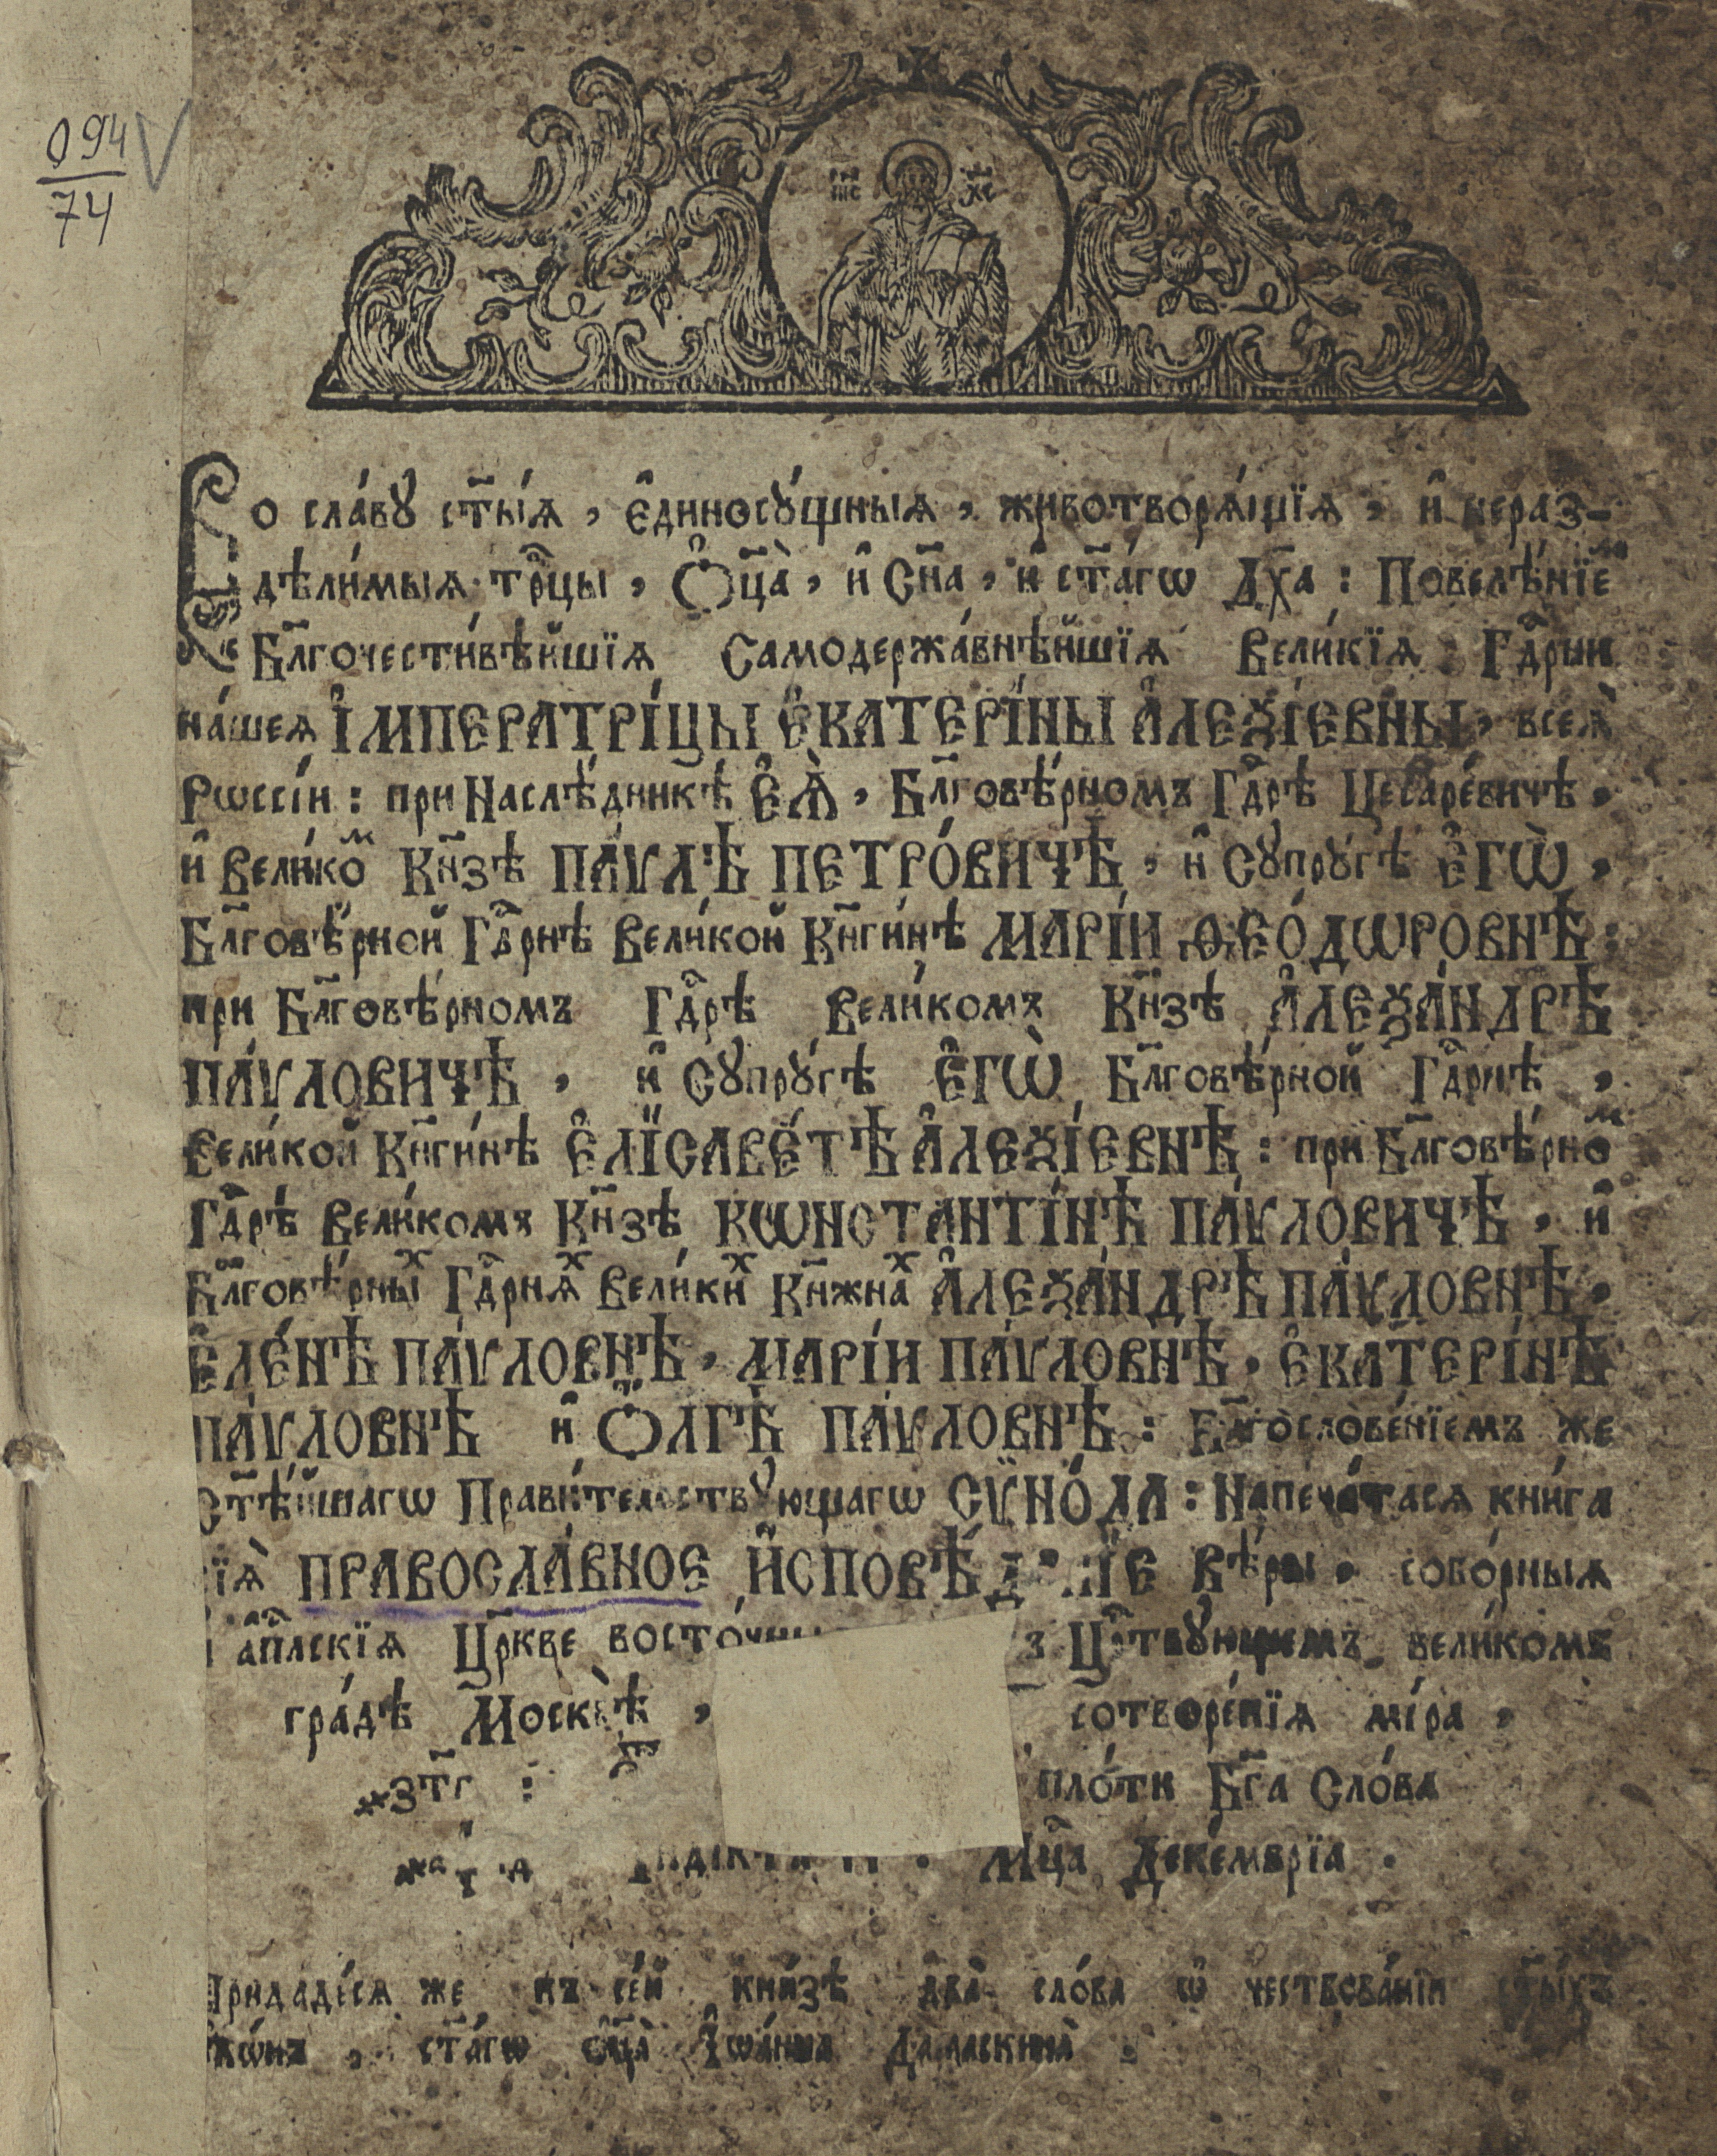 094
74
Во сла́вꙋ ст҃ы́ѧ, є҆диносꙋ́щныѧ, животворѧ́щїѧ, и҆ нераз-
дѣли́мыѧ трⷪ҇цы, Ѻ҆ц҃а̀, и҆ Сн҃а, и҆ ст҃а́гѡ Дх҃а: Повелѣ́нїе
Бл҃гочести́вѣйшїѧ Самодержа́внѣйшїѧ Вели́кїѧ Гдⷭ҇рни
на́шеѧ І҆МПЕРАТРІ́ЦЫ Є҆КАТЕРІ́НЫ А҆ЛЕѮІ́ЕВНЫ, всеѧ̀
Рѡссі́и: при Наслѣ́дникѣ Є҆Ѧ̀, Бл҃говѣ́рномъ Гдⷭ҇рѣ Цесаре́вичѣ,
и҆ Вели́коⷨ Кн҃зѣ ПА́ѴЛѢ ПЕТРО́ВИЧѢ, и҆ Сꙋпрꙋ́гѣ Є҆ГѠ̀,
Бл҃говѣ́рной Гдⷭ҇рнѣ Вели́кой Кн҃ги́нѣ МАРІ́И ѲЕО́ДѠРОВНѢ:
при Бл҃говѣ́рномъ Гдⷭ҇рѣ Вели́комъ Кн҃зѣ А҆ЛЕѮА́НДРѢ
ПА́ѴЛОВИЧѢ, и҆ Сꙋпрꙋ́гѣ Є҆ГѠ̀ Бл҃говѣ́рной Гдⷭ҇рнѣ,
Вели́кой Кн҃ги́нѣ Є҆ЛЇСАВЕ́ТѢ А҆ЛЕѮІ́ЕВНѢ: при Бл҃говѣ́рноⷨ
Гдⷭ҇рѣ Вели́комъ Кн҃зѣ КѠНСТАНТІ́НѢ ПА́ѴЛОВИЧѢ, и҆
Бл҃говѣ́рныⷯ Гдⷭ҇рнѧⷯ Вели́киⷯ Кн҃жнаⷯ А҆ЛЕѮА́НДРѢ ПА́ѴЛОВНѢ,
Є҆ЛЕ́НѢ ПА́ѴЛОВНѢ, МАРІ́И ПА́ѴЛОВНѢ, Є҆КАТЕРІ́НѢ
ПА́ѴЛОВНѢ и҆ Ѻ҆́ЛГѢ ПА́ѴЛОВНѢ: Бл҃гослове́нїемъ же
Ст҃ѣ́йшагѡ Прави́тельствꙋющагѡ СѴНО́ДА: Напеча́тасѧ кни́га
сїѧ̀ ПРАВОСЛА́ВНОЕ И҆СПОВѢ́ДАНЇЕ Вѣ́ры, собо́рныѧ
и҆ а҆пⷭ҇лскїѧ Цр҃кве восто́чны Цⷭ҇рствꙋющемъ вели́комъ
гра́дѣ Москвѣ̀, сотворе́нїѧ мі́ра,
҂зт҃г : пло́ти Бг҃а Сло́ва
Мцⷭ҇а Деке́мврїа .
Придаде́сѧ же къ се́й кни́зѣ два̀ сло́ва ѡ҆ че́ствованїи ст҃ы́хъ
і҆кѡ́нъ, ст҃а́гѡ ѻ҆ц҃а̀ І҆ѡа́нна Дамаскина̀ .